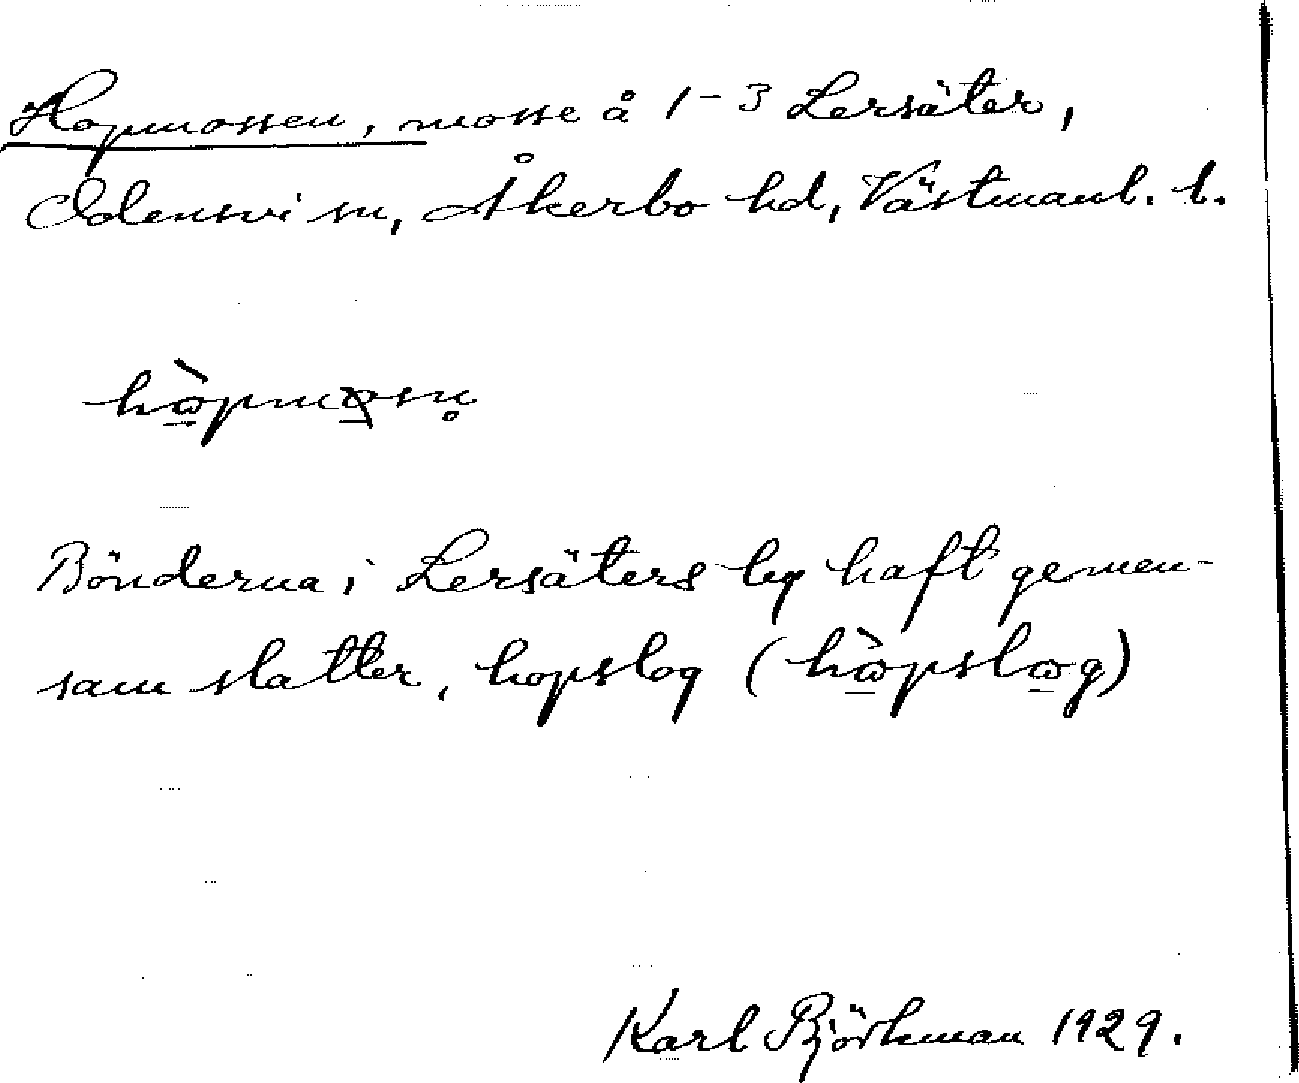 Hopmossen, mosse å 1-3 Lersäter,
Odensvi sn, Åkerbo hd, Västmanl. l.
hòpmosn̥
Bönderna i Lersäters by haft gemen-
sam slatter, hopslog (hòpslog)
Karl Björkman 1929.